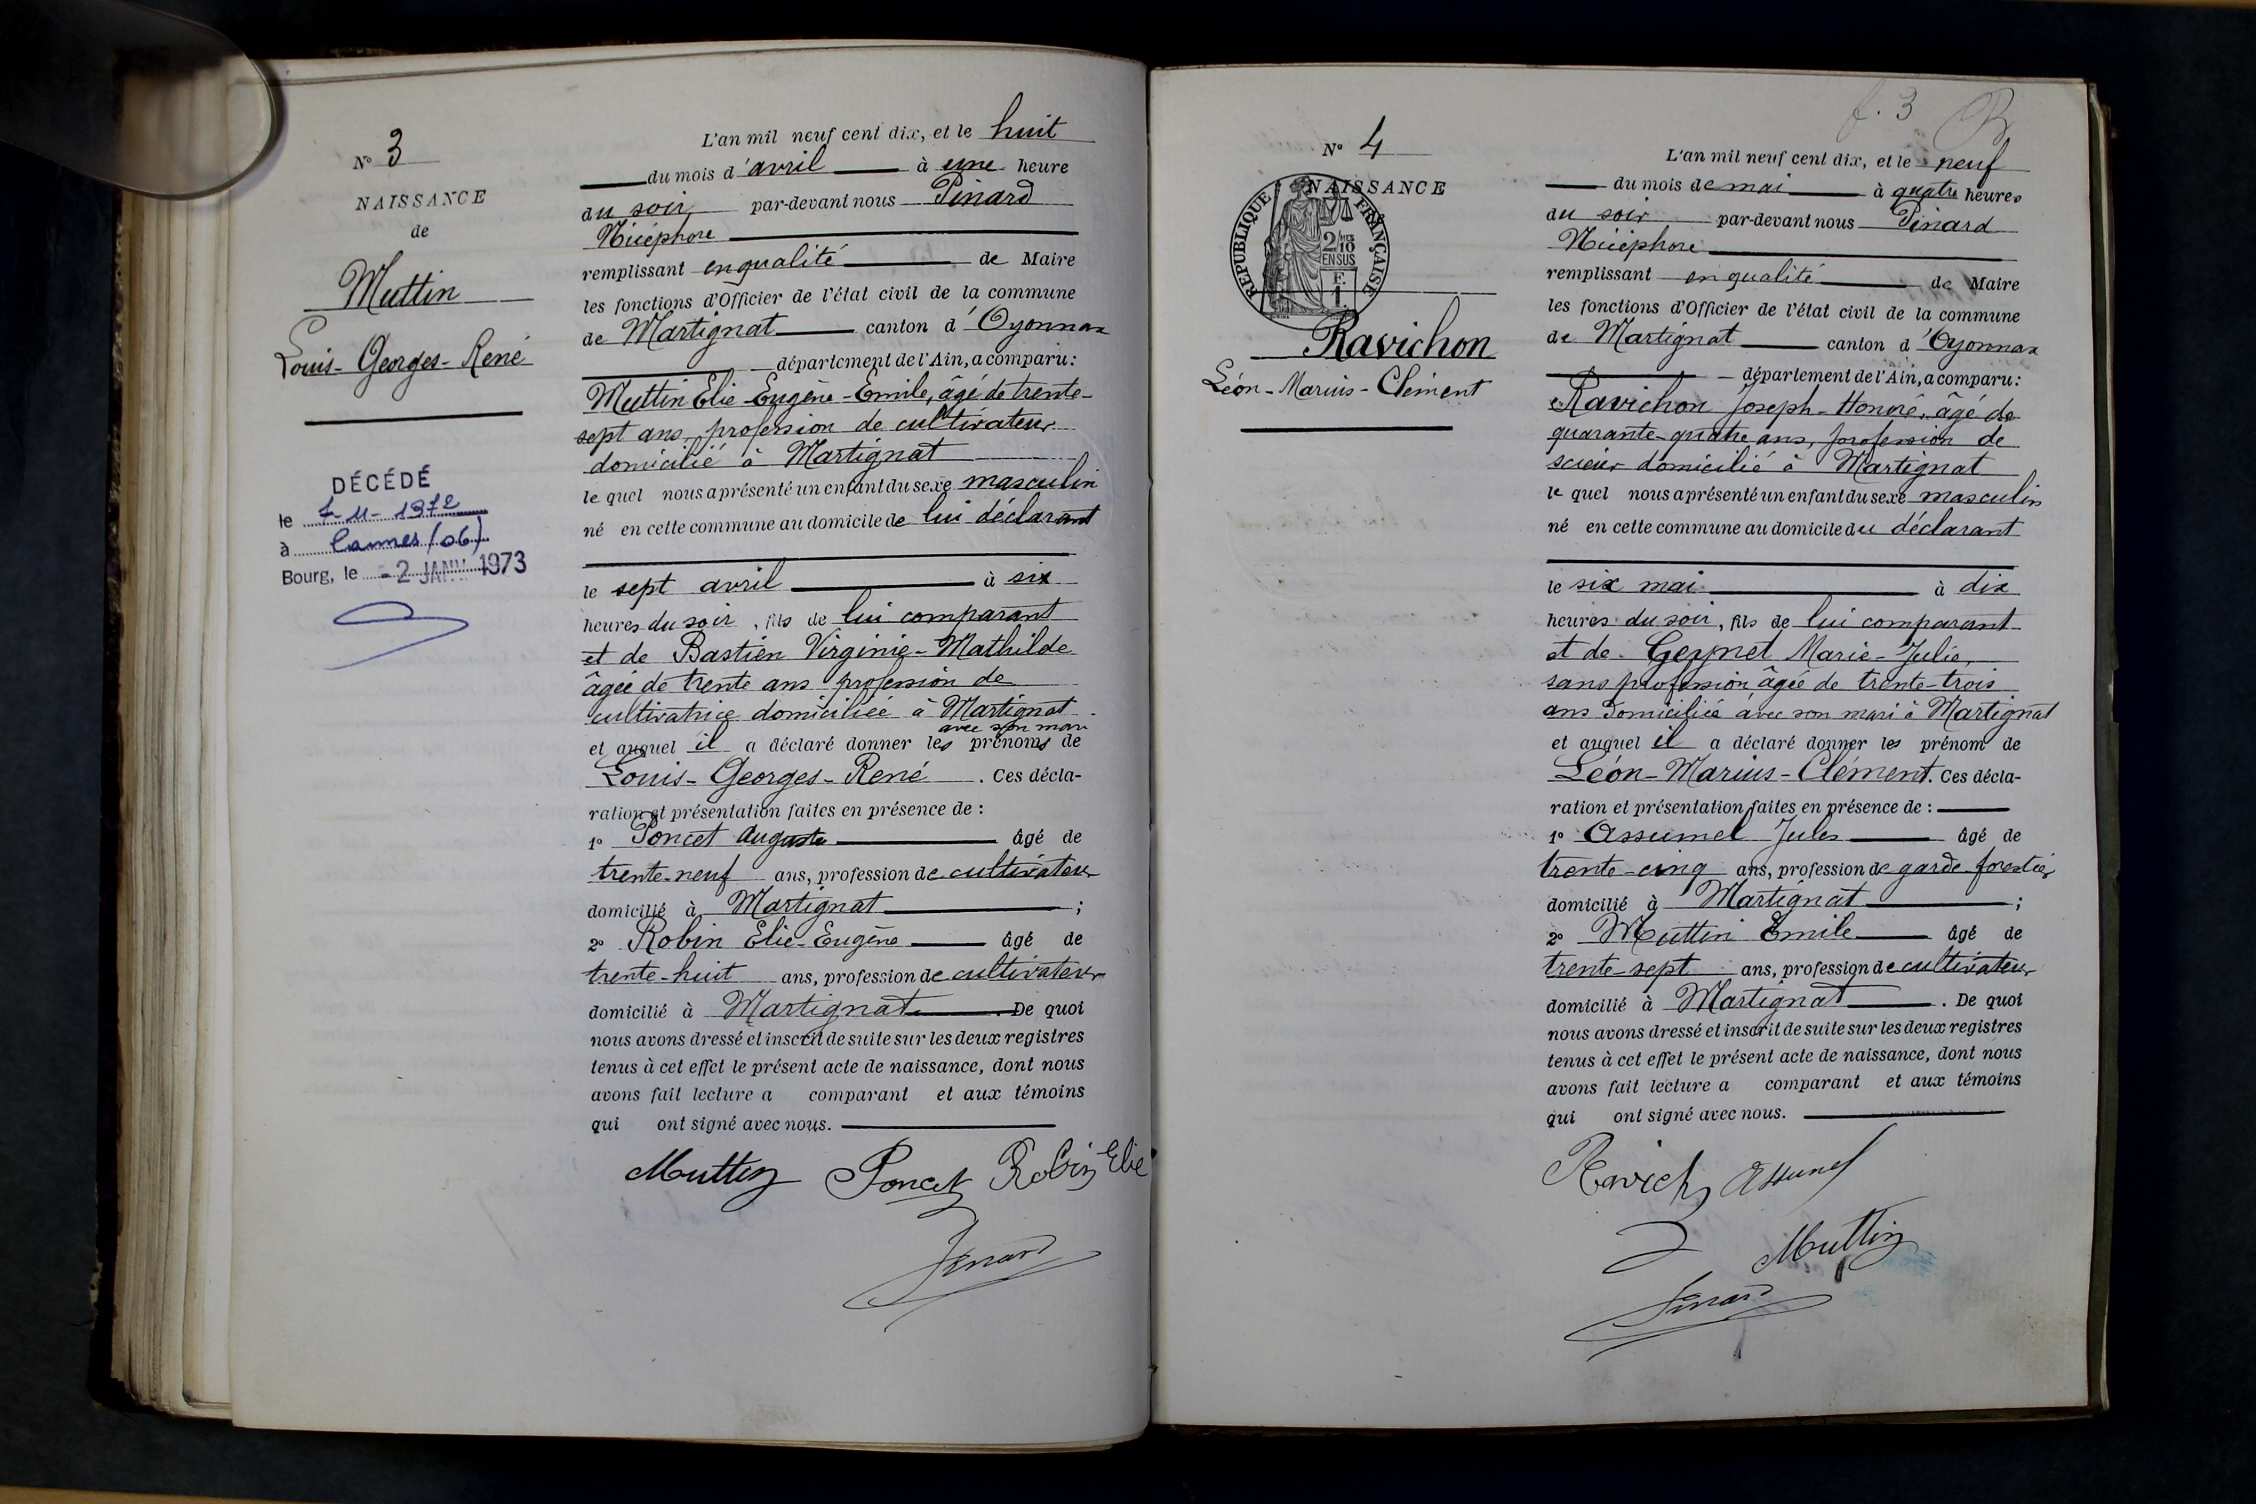 N° 3
NAISSANCE
de
Muttin
Louis-Georges-René
DÉCÉDÉ
le 7-11-1972
à Cannes (06)
Bourg, le -2 JANV. 1973
L'an mil neuf cent dix, et le huit
du mois d'avril à une heure
du soir par-devant nous Pinard
Nicéphore
remplissant en qualité de Maire
les fonctions d'Officier de l'état civil de la commune
de Martignat canton d'Oyonnax
département de l'Ain, a comparu:
Muttin Elie-Eugène-Emile, âgé de trente-
sept ans profession de cultivateur
domicilié à Martignat
le quel nous a présenté un enfant du sexe masculin
né en cette commune au domicile de lui déclarant
le sept avril à six
heures du soir, fils de lui comparant
et de Bastien Virginie-Mathilde
âgée de trente ans profession de
cultivatrice domiciliée à Martignat
avec son mari
et auquel il a déclaré donner les prénoms de
Louis-Georges-René. Ces décla-
ration et présentation faites en présence de :
1° Poncet Auguste âgé de
trente-neuf ans, profession de cultivateur
domicilié à Martignat ;
2° Robin Elie-Eugène âgé de
trente-huit ans, profession de cultivateur
domicilié à Martignat. De quoi
nous avons dressé et inscrit de suite sur les deux registres
tenus à cet effet le présent acte de naissance, dont nous
avons fait lecture a comparant et aux témoins
qui ont signé avec nous.
Muttin Poncet Robin Elie
Pinard
f. 3
N° 4
NAISSANCE
REPUBLIQUE FRANÇAISE
2/10
EN SUS
F.
1.
Ravichon
Léon-Marius-Clément
L'an mil neuf cent dix, et le neuf
du mois de mai à quatre heures
du soir par-devant nous Pinard
Nicéphore
remplissant en qualité de Maire
les fonctions d'Officier de l'état civil de la commune
de Martignat canton d'Oyonnax
département de l'Ain, a comparu:
Ravichon Joseph-Honoré, âgé de
quarante-quatre ans, profession de
scieur domicilié à Martignat
le quel nous a présenté un enfant du sexe masculin
né en cette commune au domicile du déclarant
le six mai à dix
heures du soir, fils de lui comparant
et de Geynet Marie-Julie,
sans profession âgée de trente-trois
ans domiciliée avec son mari à Martignat
et auquel il a déclaré donner les prénom de
Léon-Marius-Clément. Ces décla-
ration et présentation faites en présence de :
1° Assumel Jules âgé de
trente-cinq ans, profession de garde-forestier
domicilié à Martignat ;
2° Muttin Emile âgé de
trente-sept ans, profession de cultivateur
domicilié à Martignat. De quoi
nous avons dressé et inscrit de suite sur les deux registres
tenus à cet effet le présent acte de naissance, dont nous
avons fait lecture a comparant et aux témoins
qui ont signé avec nous.
Ravichon Assumel
Muttin
Pinard